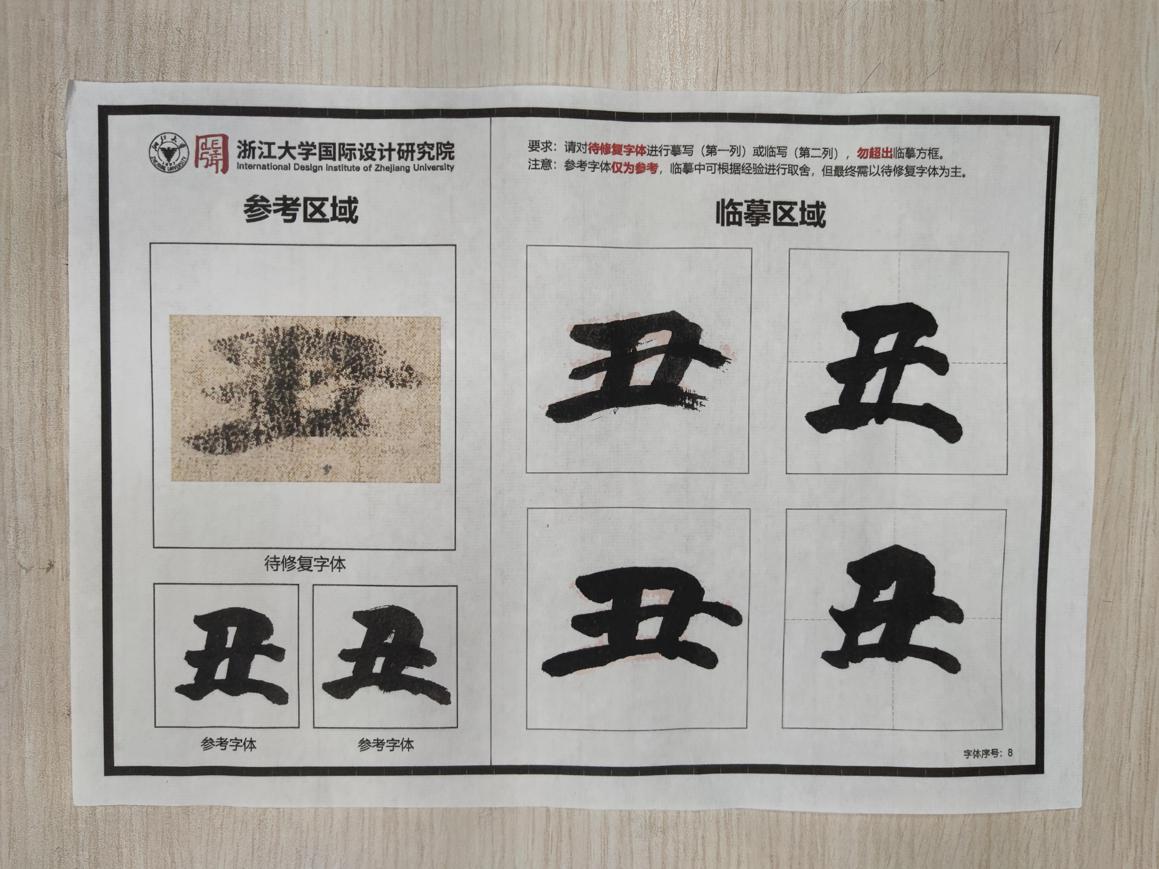 浙江大学国际设计研究院
International Design Institute of Zhejiang University
参考区域
丑
待修复字体
丑 丑
参考字体 参考字体
要求：请对待修复字体进行摹写（第一列）或临写（第二列），勿超出临摹方框。
注意：参考字体仅为参考，临摹中可根据经验进行取舍，但最终需以待修复字体为主。
临摹区域
丑 丑
丑 丑
字体序号：8